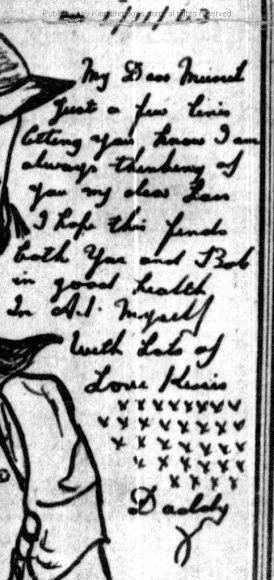 My Dear Muriel
Just a few lines
letting you know I am
always thinking of
you my dear Lass
I hope this finds
both You and Bob
in good health
In A.1. Myself
With Lots of
Love Kisses
x x x x x x x x
x x x x x x x x
x x x x x x x
x x x x x x
x x x x x
Daddy